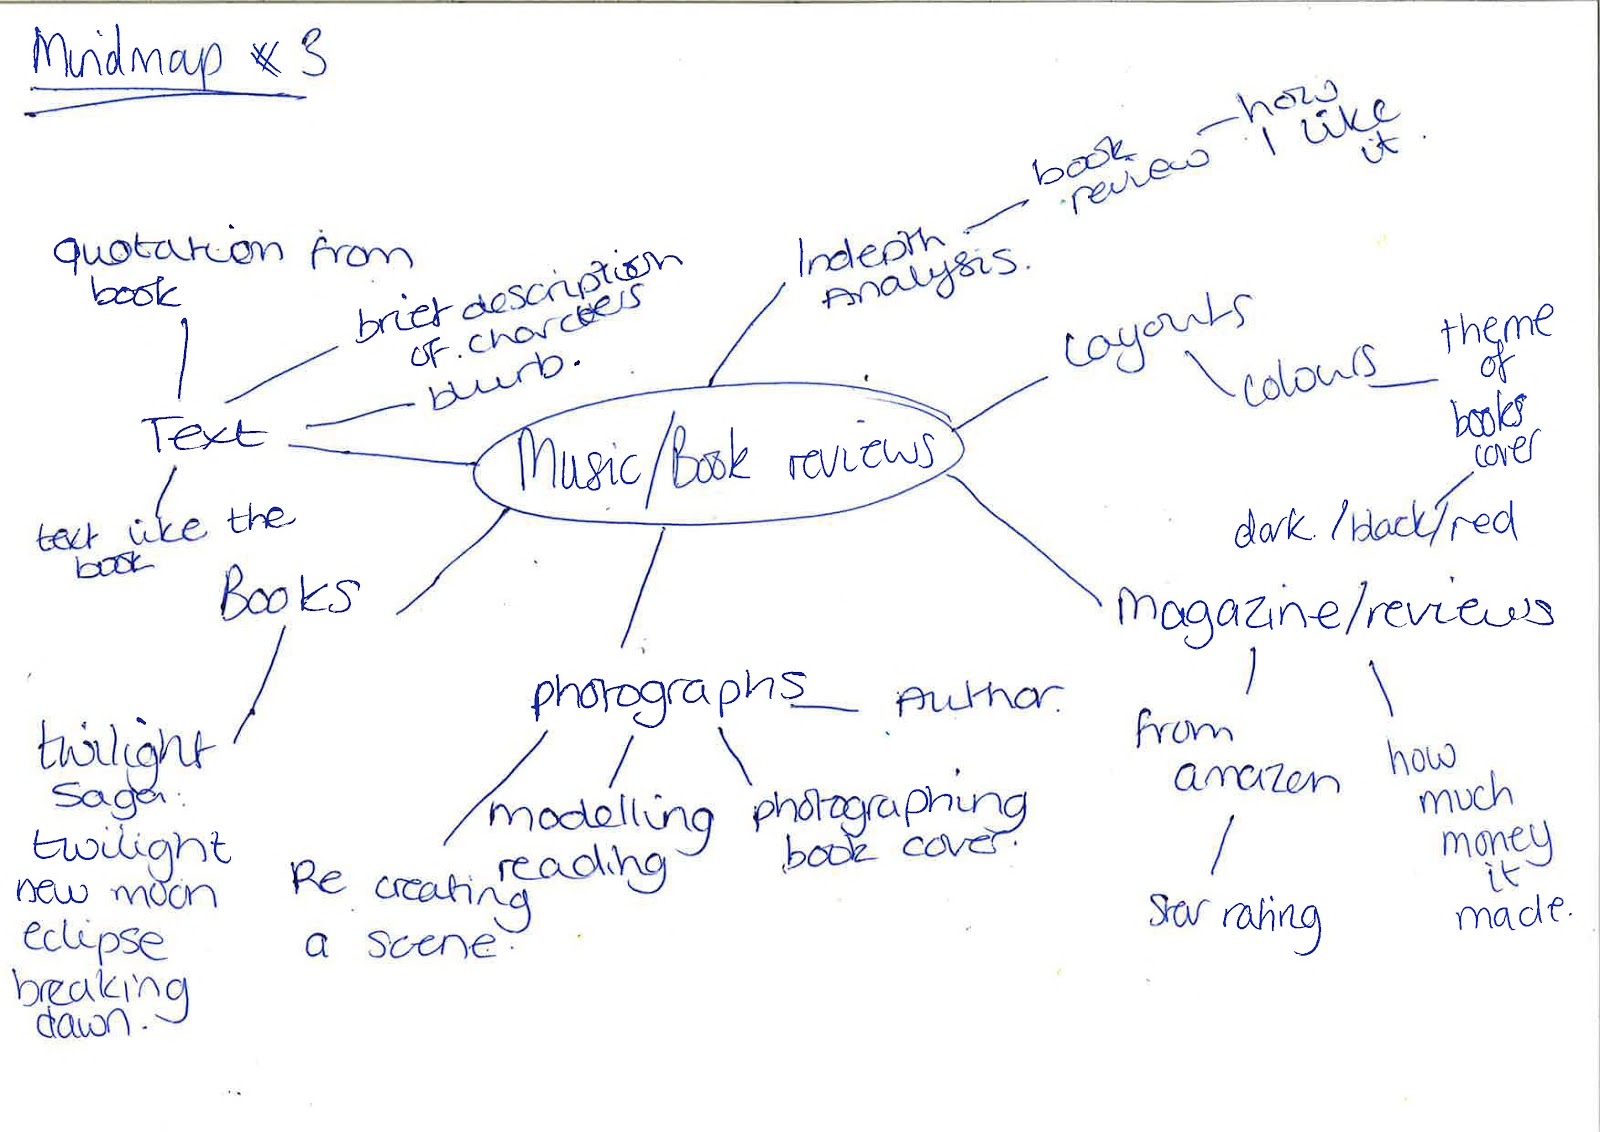 Mindmap * 3
quotation from
book
brief description
of charcters
blurb.
Text
text like the
book
Indepth
Analysis.
book
review
how
I like
it.
Layouts
colours
theme
of
books
cover
dark /black/red
Music/Book reviews
Books
twilight
saga.
twilight
new moon
eclipse
breaking
dawn.
photographs
Author.
Re creating
a scene.
modelling
reading
photographing
book cover.
Magazine/reviews
from
amazon
star rating
how
much
money
it
made.